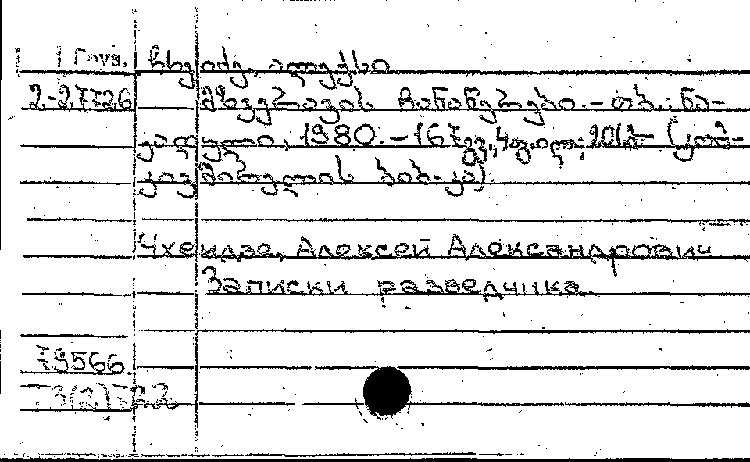 ჩხეიძე, ალექსი
2-27726 მზვერავის ჩანაწერები. - თბ.: ნა-
კადული, 1980. - 167გვ., 4 ფ. ილ.; 20სმ - (კომ-
კავშირელის ბიბ-კა)
Чхеидзе, Алексей Александрович
Записки разведчика.
79566
73(2)722